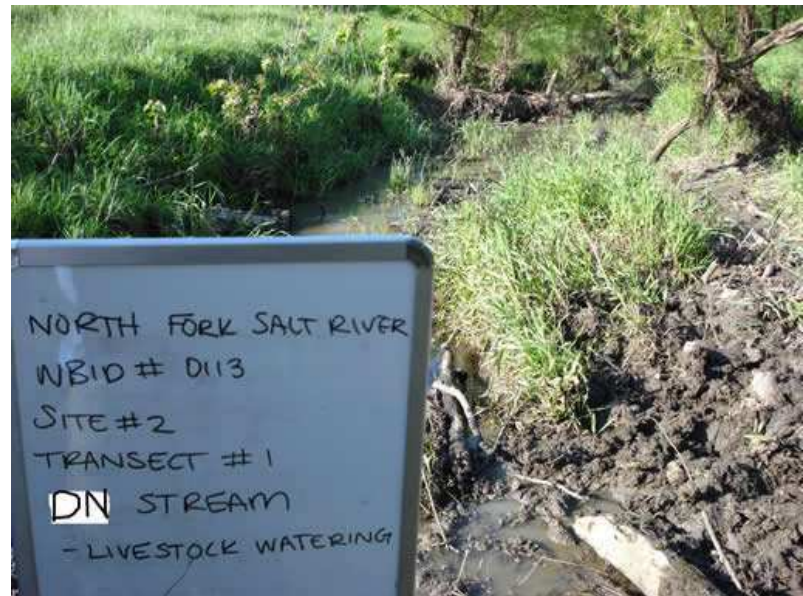 NORTH FORK SALT RIVER
WBID # 0113
SITE #2
TRANSECT # 1
DN STREAM
- LIVESTOCK WATERING